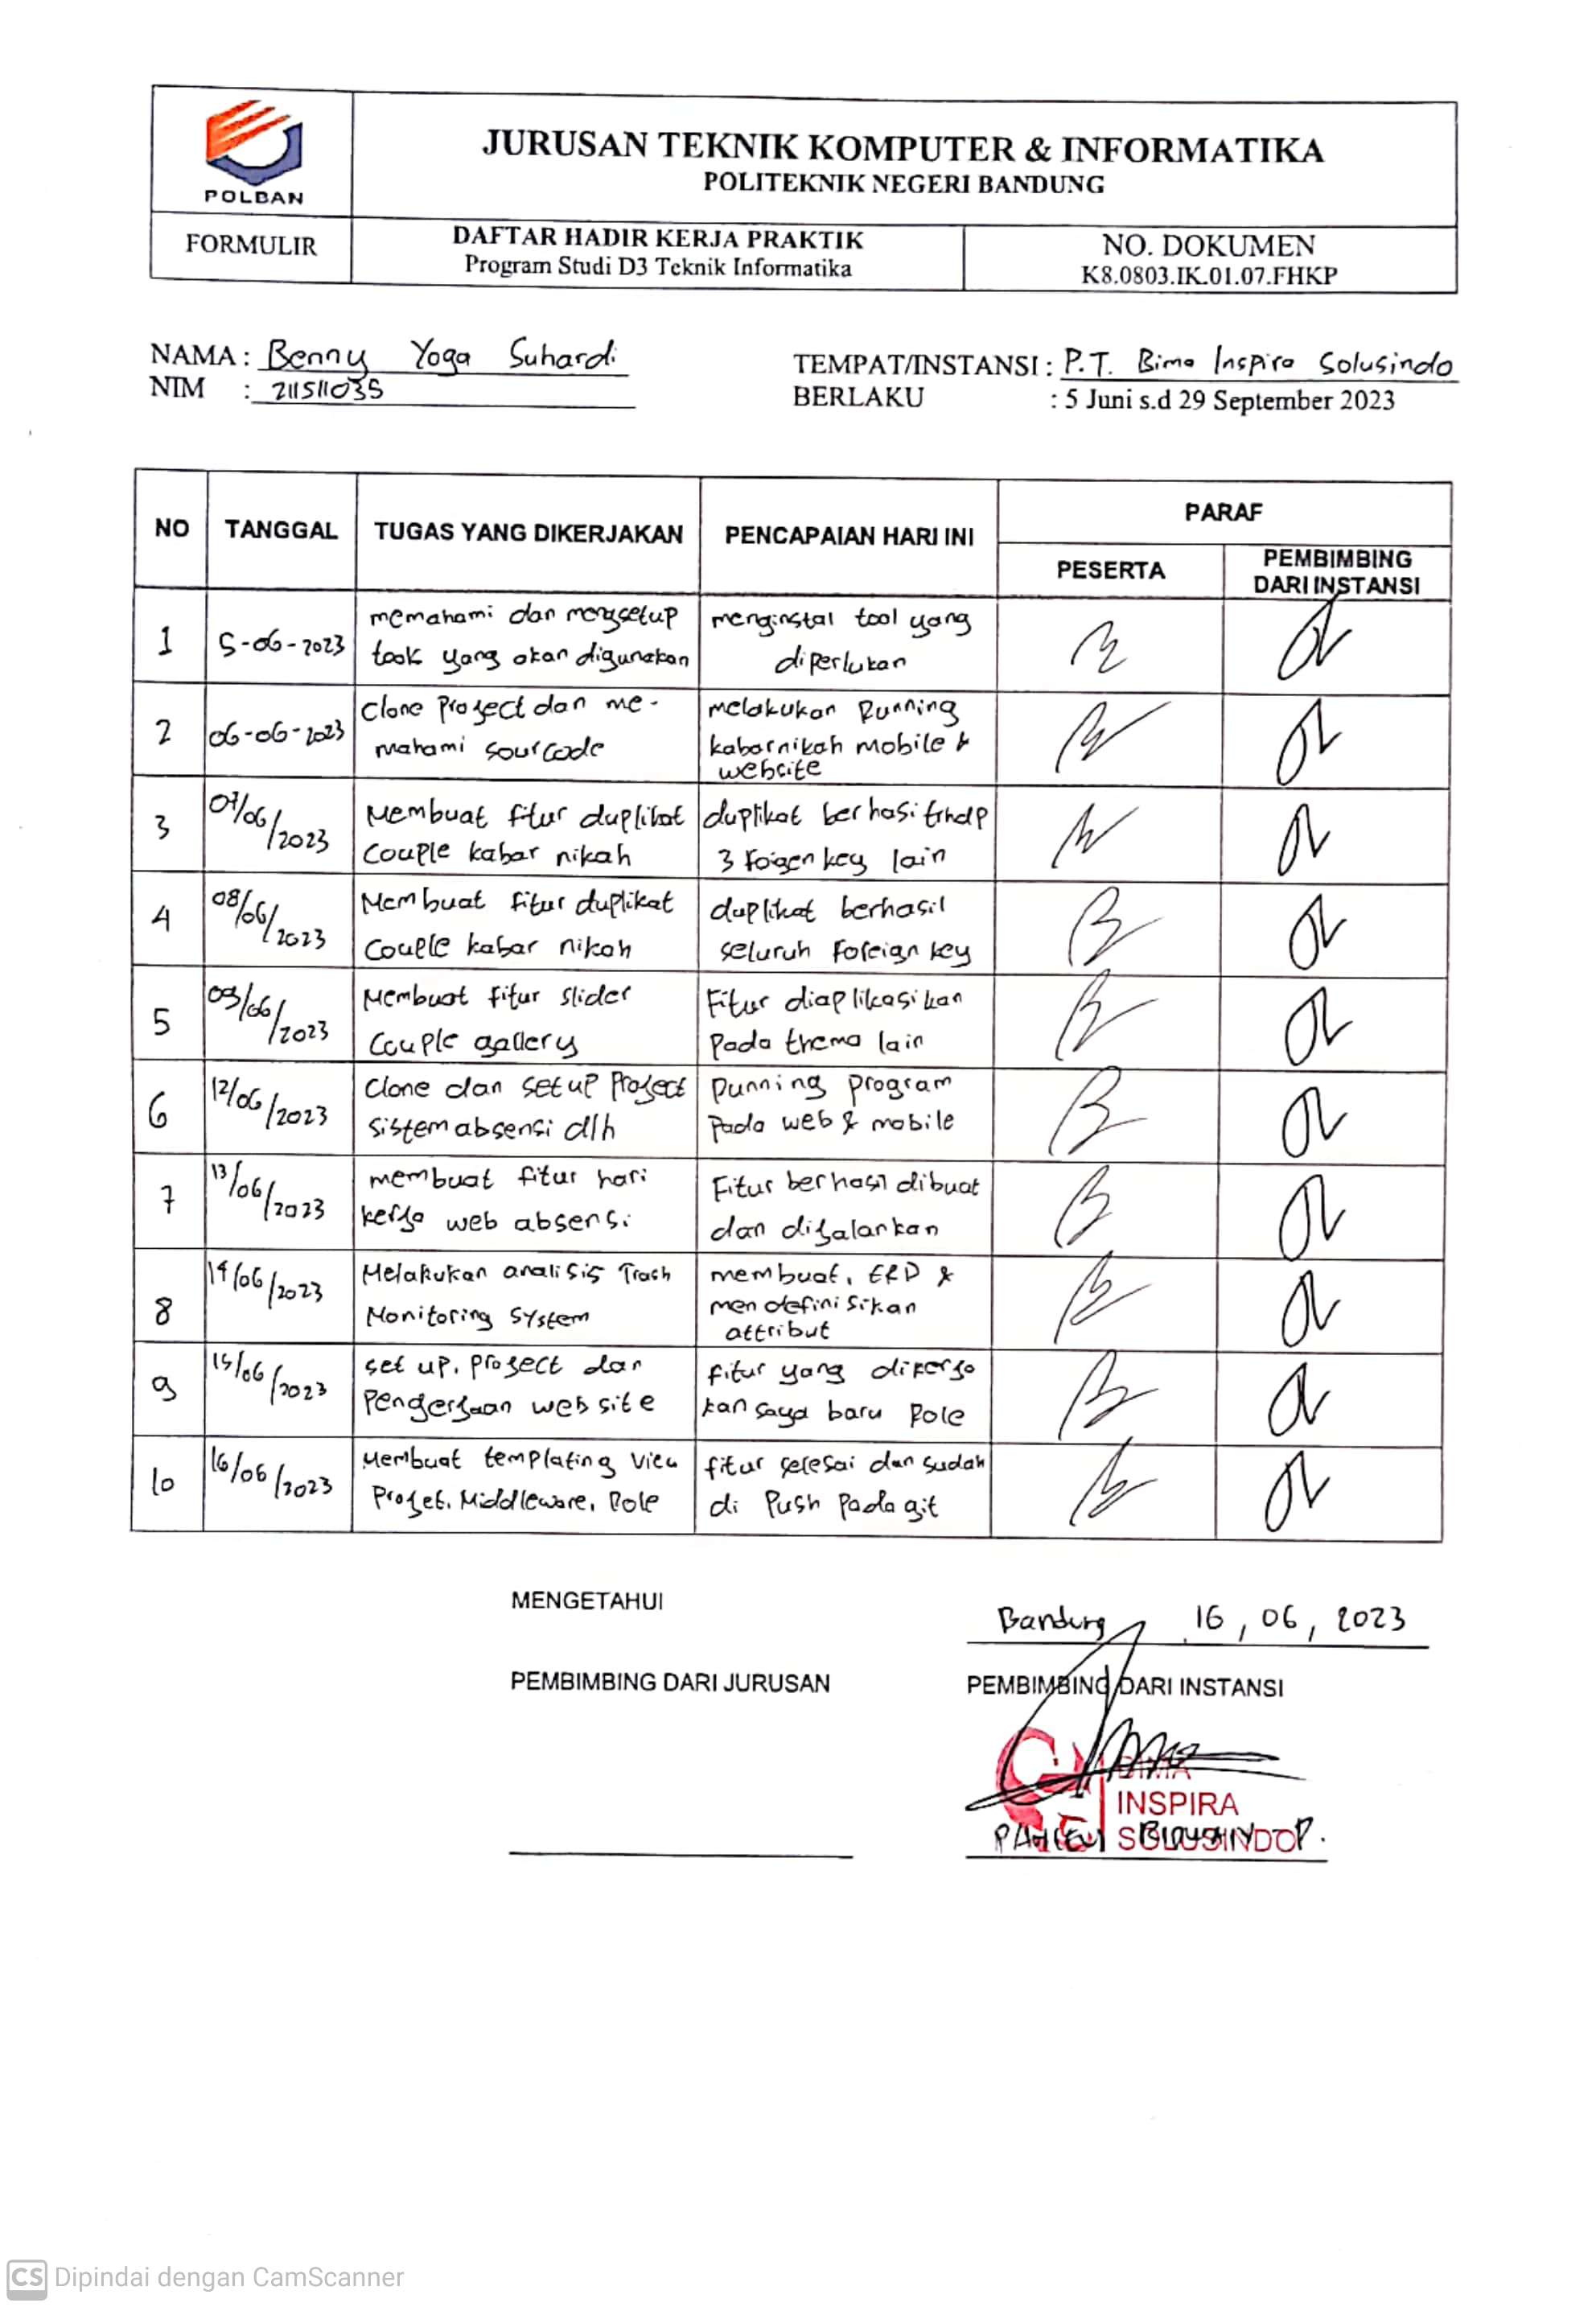 POLBAN
JURUSAN TEKNIK KOMPUTER & INFORMATIKA
POLITEKNIK NEGERI BANDUNG
FORMULIR
DAFTAR HADIR KERJA PRAKTIK
Program Studi D3 Teknik Informatika
NO. DOKUMEN
K8.0803.IK.01.07.FHKP
NAMA : Benny Yoga Suhardi
NIM : 211511035
TEMPAT/INSTANSI : P.T. Bima Inspira Solusindo
BERLAKU : 5 Juni s.d 29 September 2023
NO TANGGAL TUGAS YANG DIKERJAKAN PENCAPAIAN HARI INI PARAF
PESERTA PEMBIMBING
DARI INSTANSI
1 5-06-2023
memahami dan mengsetup
tools yang akan digunakan
menginstal tool yang
diperlukan
2 06-06-2023
Clone Project dan me-
mahami sourcode
melakukan Running
kabarnikah mobile &
website
3 07/06/2023
Membuat fitur duplikat
Couple kabar nikah
duplikat berhasi trhdp
3 foigen key lain
4 08/06/2023
Membuat fitur duplikat
Couple kabar nikah
duplikat berhasil
seluruh Foreign key
5 09/06/2023
Membuat fitur slider
Couple gallery
Fitur diaplikasikan
Pada thema lain
6 12/06/2023
Clone dan setup Project
sistem absensi dlh
Running program
Pada web & mobile
7 13/06/2023
membuat fitur hari
kerja web absensi
Fitur berhasil dibuat
dan dijalankan
8 14/06/2023
Melakukan analisis Trash
Monitoring System
membuat, ERD &
mendefinisikan
attribut
9 15/06/2023
set up, project dan
Pengerjaan website
fitur yang dikerja
kan saya baru Role
10 16/06/2023
Membuat templating View
Projet, Middleware, Role
fitur selesai dan sudah
di Push Pada git
MENGETAHUI
Bandung, 16, 06, 2023
PEMBIMBING DARI JURUSAN
PEMBIMBING DARI INSTANSI
BIMA
INSPIRA
SOLUSINDO
CS Dipindai dengan CamScanner